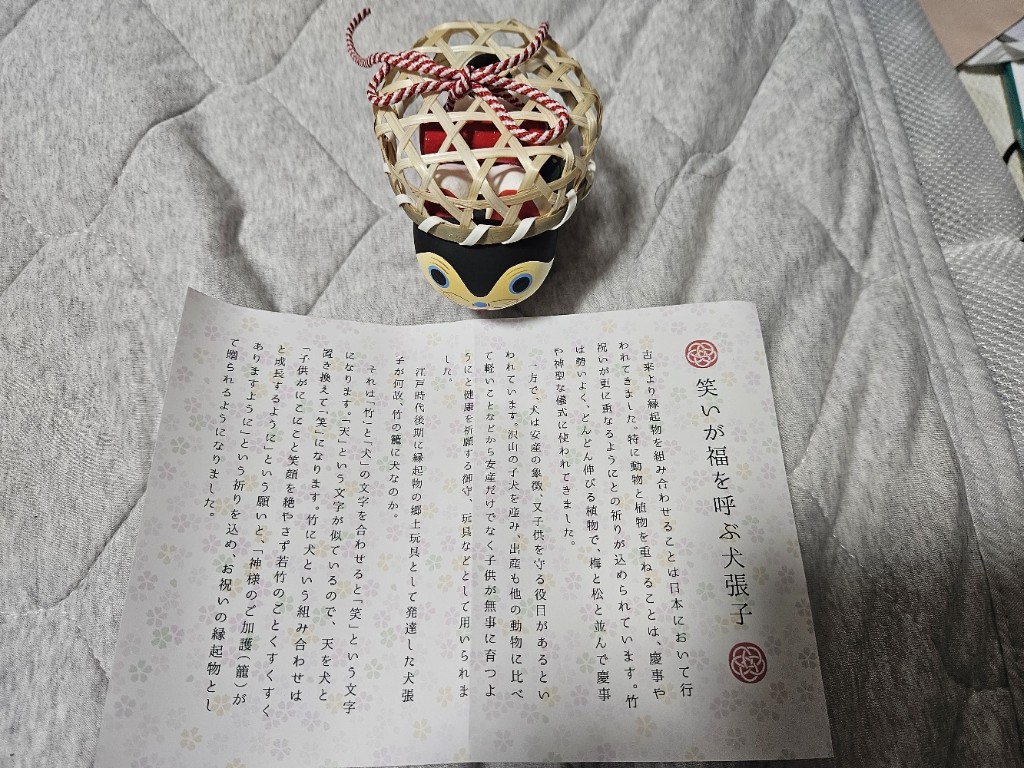 笑いが福を呼ぶ犬張子
古来より縁起物を組み合わせることは日本において行
われてきました。特に動物と植物を重ねることは、慶事や
祝いが更に重なるようにとの祈りが込められています。竹
は勢いよく、どんどん伸びる植物で、梅と松と並んで慶事
や神聖な儀式に使われてきました。
一方で、犬は安産の象徴、又子供を守る役目があるとい
われています。沢山の子犬を産み、出産も他の動物に比べ
て軽いことなどから安産だけでなく子供が無事に育つよ
うにと健康を祈願する御守、玩具などとして用いられま
した。
江戸時代後期に縁起物の郷土玩具として発達した犬張
子が何故、竹の籠に犬なのか。
それは「竹」と「犬」の文字を合わせると「笑」という文字
になります。「天」という文字が似ているので、天を犬と
置き換えて「笑」になります。竹に犬という組み合わせは
「子供がにこにこと笑顔を絶やさず若竹のごとくすくすく
と成長するように」という願いと、「神様のご加護(籠)が
ありますように」という祈りを込め、お祝いの縁起物とし
て贈られるようになりました。